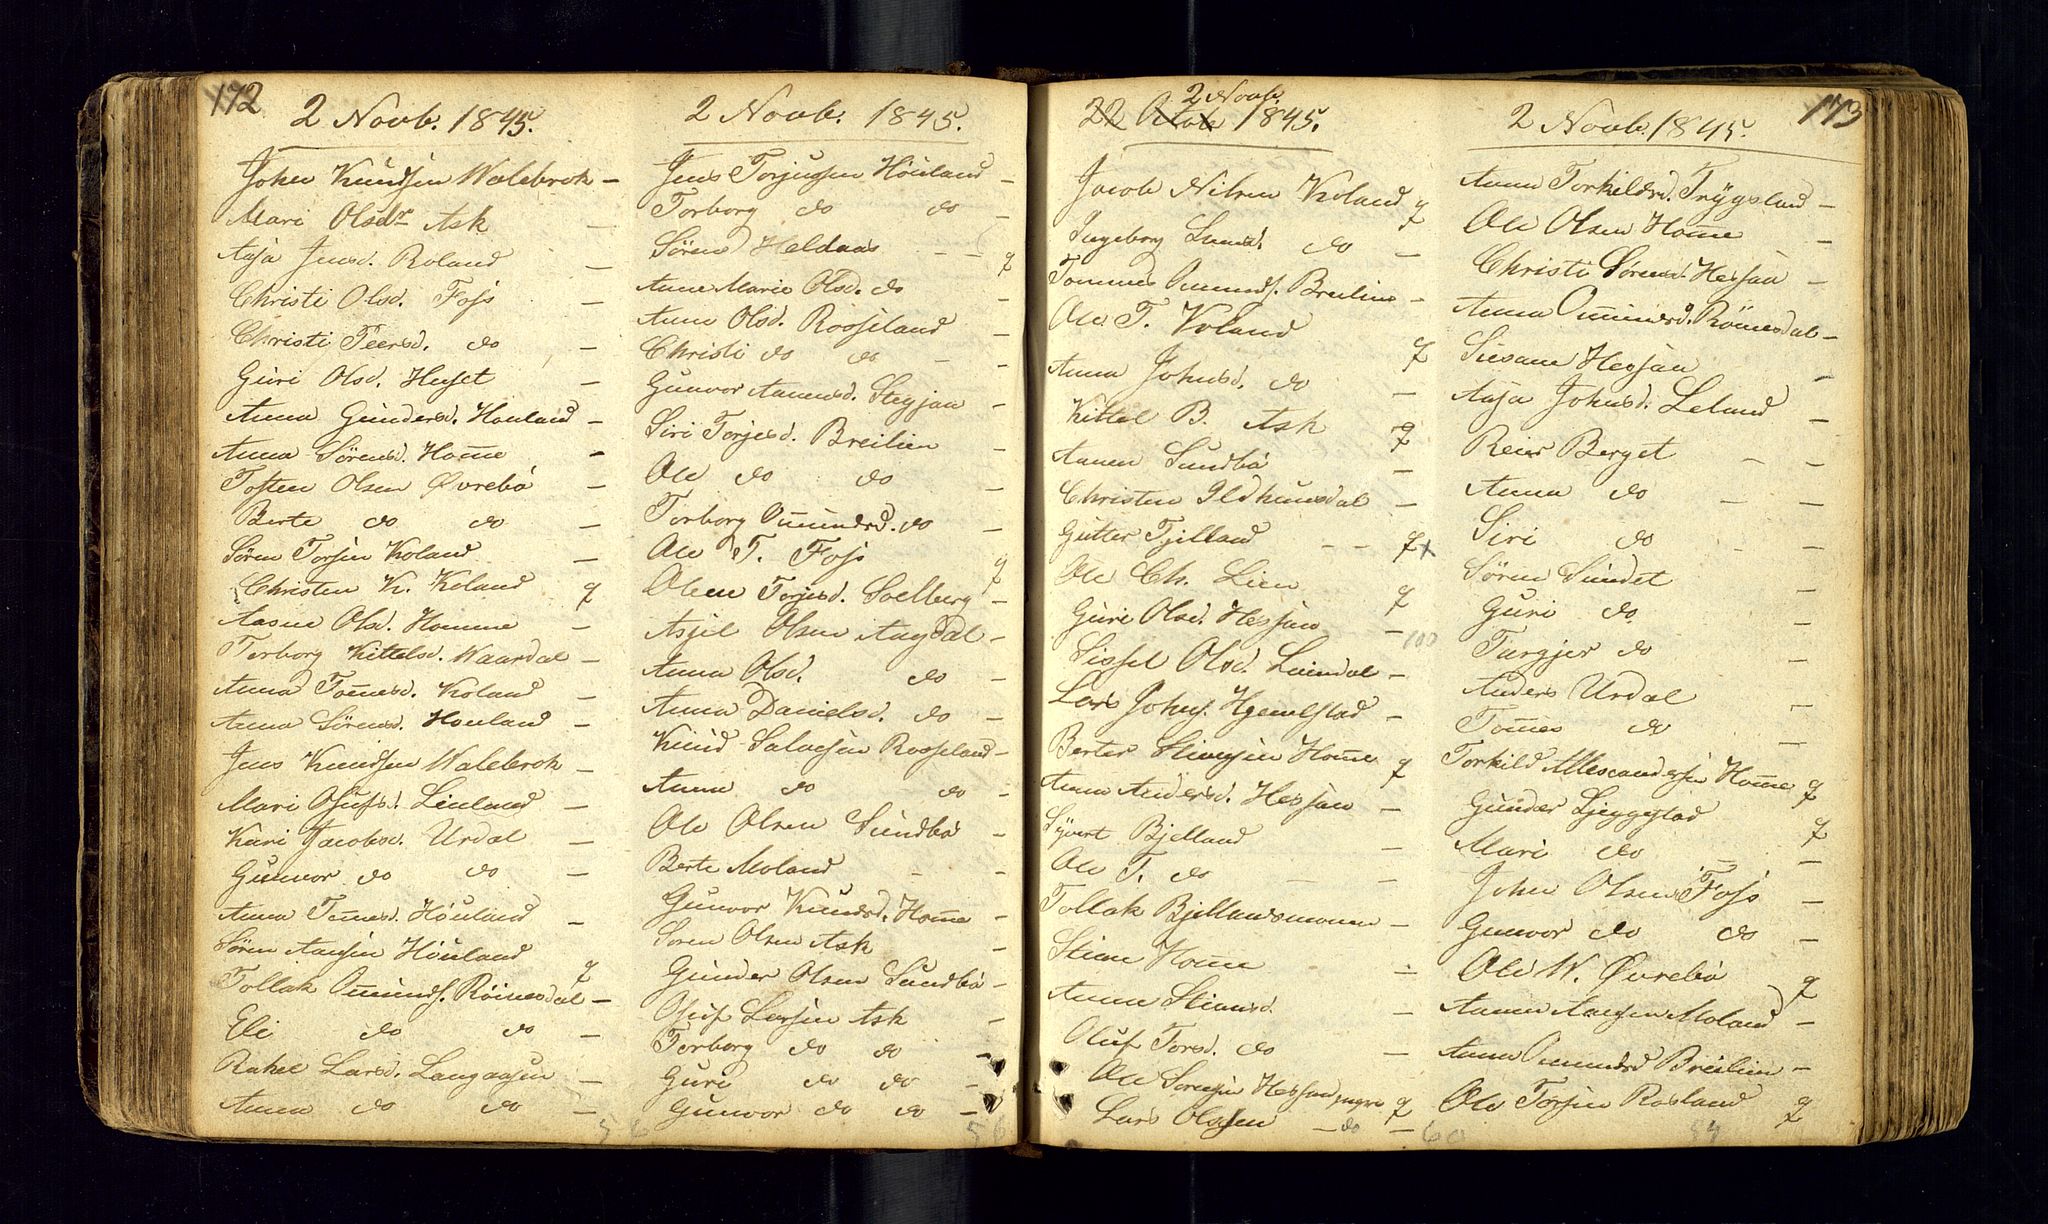 172
2 Novb. 1845.
John Knudsen Walebrok -
Mari Olsdr Ask -
Aasa Jensd. Roland -
Christi Olsd. Foss -
Christi Peersd. do -
Guri Olsd. Huset -
Anna Gundersd. Houland -
Anna Sørensd. Home -
Tosten Olsen Øvrebö -
Berte do do -
Søren Torsen Koland -
Christen K. Koland q
Aasne Olsd. Homme -
Torborg Kittelsd. Waardal -
Anna Tomesd. Koland -
Anna Sørensd. Houland -
Jens Knudsen Walebrok -
Mari Olufsd. Linland -
Kari Jacobsd. Urdal -
Gunvor do do -
Anna Tomesd. Houland -
Søren Aansen Houland q
Tollak Omunds. Röinesdal -
Eli do do -
Rakel Larsd. Langaasen -
Anna do do -
56
2 Novb. 1845.
Jens Torjusen Houland -
Torborg do do -
Søren Heldaas - - q
Anne Marie Olsd. do -
Anne Olsd. Roosseland -
Christi do do - -
Gunvor Aanensd. Stegjan -
Siri Torjesd. Breilien -
Ole do do -
Torborg Omundsd. do -
Ole T. Foss q
Olene Torjesd. Solberg -
Asjel Olsen Augdal -
Anna Olsd. do -
Anna Danielsd. do -
Knud Salvesen Rosseland -
Anna do do -
Ole Olsen Sundbö -
Berte Moland - -
Gunvor Knudsd. Home -
Soren Olsen Ask -
Gunder Olsen Sundbö -
Oluf Larsen Ask -
Torborg do do -
Guri do do -
Gunvor do do -
56
173
2 Novb.
22 Octob 1845.
Jacob Nilsen Koland q
Ingeborg Larsd. do -
Tommes Omunds. Breilien -
Ole T. Koland q
Anna Johnsd. do -
Kittel B. Ask q
Aanen Sundbö -
Christen Ildhunsdal -
Gutter Fjelland - - q x
Ole Ch. Lien q
Guri Olsd. Hessaa - 100
Sissel Olsd. Lauvdal -
Lars Johns. Hjemlstad -
Berter Stiansen Home q
Anna Andersd. Hessaa -
Syvert Bjelland -
Ole T. do - -
Tollak Bjellandsmoen -
Stian Home -
Anna Stiansd. -
Oluf Torsd. do -
Ole Sorensen Hessaa yngre q
Lars Olsen - do -
60
2 Novb. 1845.
Anna Torkildsd. Trygsland -
Ole Olsen Home -
Christi Sørensd. Hessaa -
Anna Omundsd. Röinesdal -
Susane Hessaa -
Aasa Johnsd. Leland -
Reier Berget - -
Anna do - -
Siri do - -
Søren Sundet -
Guri do -
Turgjer do -
Anders Urdal -
Tomes do -
Torkild Allexandersen Home q
Gunder Ljeggestad q
Mari do -
John Olsen Foss -
Gunvor do do -
Ole W. Øvrebö q
Aanen Aansen Moland -
Anna Omundsd Breilien -
Ole Torsen Rosland q
54